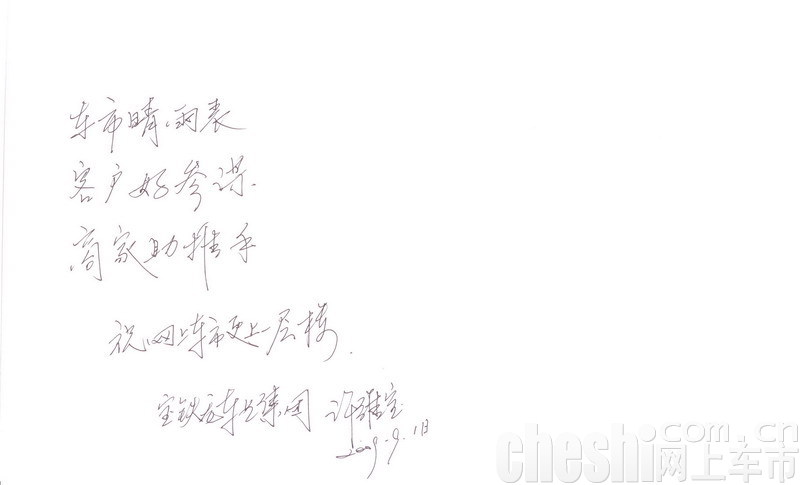 车市晴雨表
客户好参谋.
商家助推手
祝网上车市更上一层楼.
集团 许
2009.9.1日
cheshi.com.cn
网上车市